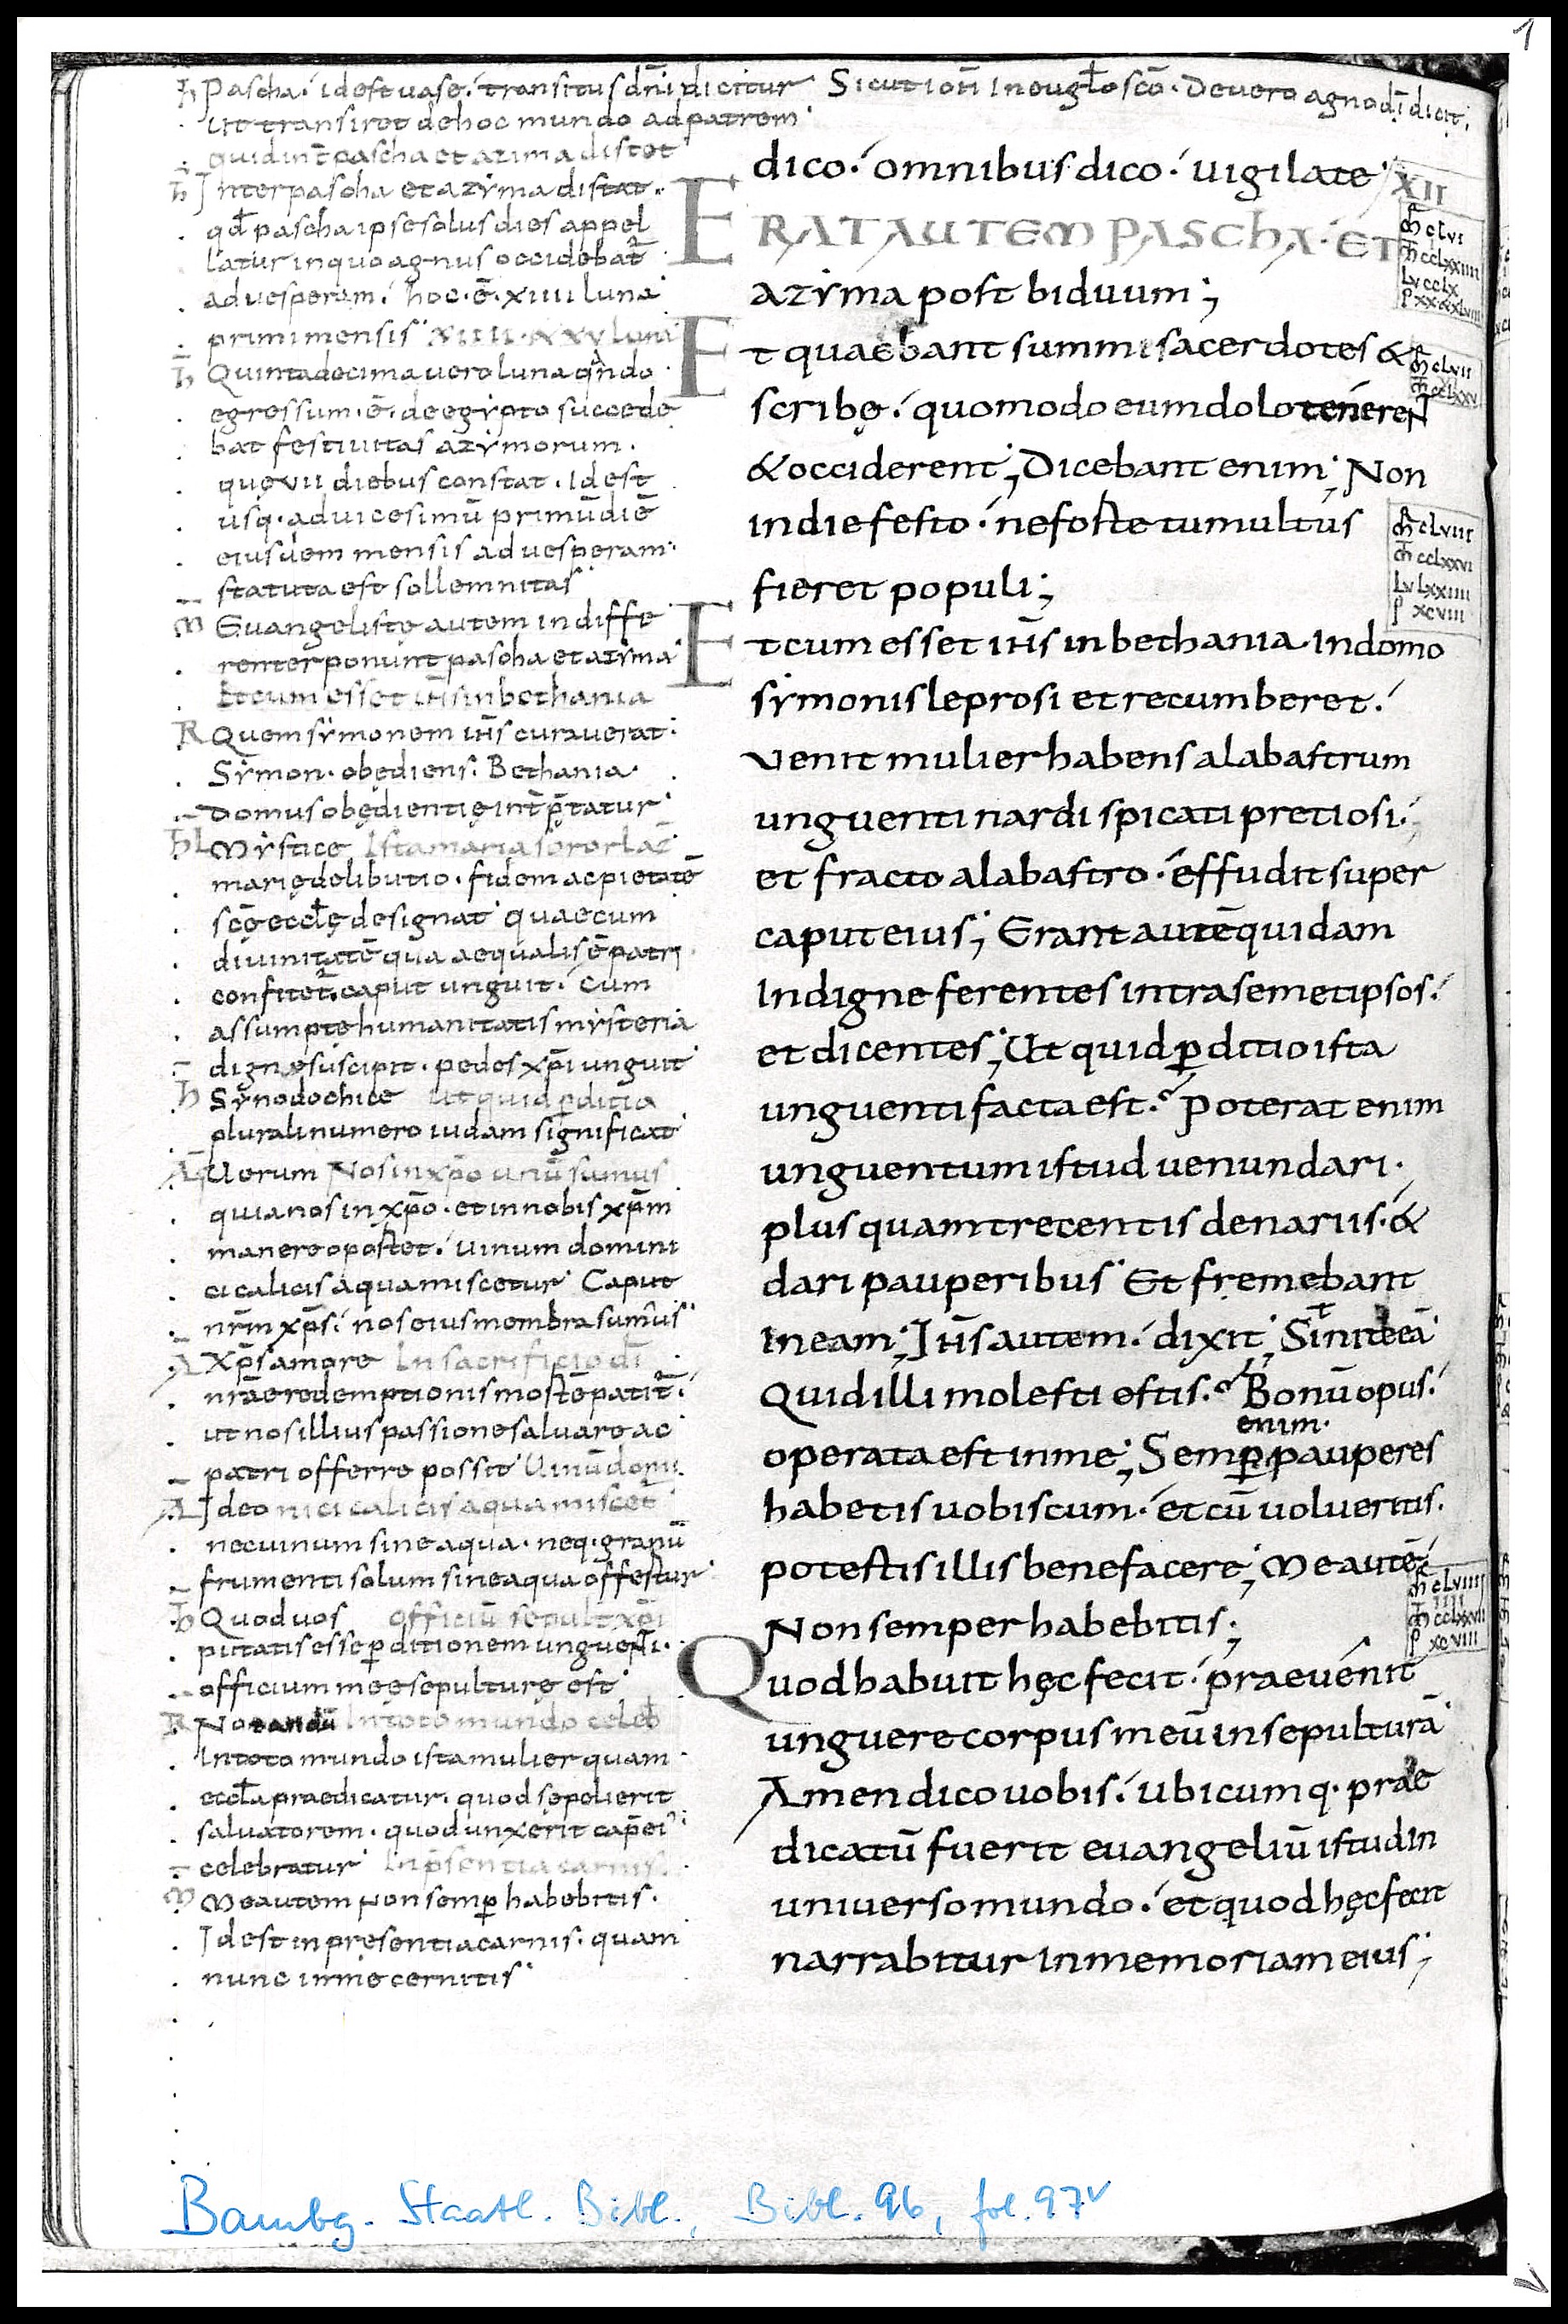 1
Pascha· id est uase· transitus dñi dicitur Sicut ioh̄
ut transiret de hoc mundo ad patrem
quid int̄ pascha et azima distet
Inter pascha et azẏma distat·
qđ pascha ipse solus dies appel
latur in quo agnus occidebat̄
ad uesperam· hoc·ē· xıııı luna
primi mensis
Quinta decima uero luna qn̄do
egressum·ē· de egẏpto succede
bat festiuitas azẏmorum·
quę vıı diebus constat· Id est
usq· ad uicesimū primū diē
eiusdem mensis ad uesperam·
statuta est sollemnitas
Euangelistę autem indiffe
renter ponunt pascha et azẏma
Et cum esset ih̄s in bethania
Quem sẏmonem ih̄s curauerat·
Sẏmon· obędiens· Bethania·
Domus obędientię int̄p̄tatur
Mẏstice Ista maria soror laz̄
marię delibutio· fidem ac pietatē
scę̄ eccl̄ę designat quae cum
diuinitatē qua aequalis ē patri
confitet̄· caput unguit· Cum
assumptę humanitatis mẏsteria
digne suscipit· pedes xp̄i unguit
Sẏnodochice ut quid p̱ditio
plurali numero iudam significat
Uerum Nos in xp̄o unū sumus
quia nos in xp̄o· et in nobis xp̄m
manere oportet· uinum domini
ci calicis aqua miscetur Caput
nr̄m xp̄s· nos eius membra sumus
Xp̄s amore In sacrificio dī
nr̄ae redemptionis mortē patit̄·
ut nos illius passione saluare ac
patri offerre possit Uinū domi
Ideo nici calicis aqua miscet̄
nec uinum sine aqua· neq· granū
frumenti solum sine aqua offertur
Quod uos officiū sepult xp̄i
putatis esse p̱ditionem unguenti·
officium meę sepulturę est
Notandū In toto mundo celeb̄
In toto mundo ista mulier quam
eccl̄a praedicatur· quod sepelierit
saluatorem· quod unxerit cap̄ ei'
celebratur In p̄sentia carnis·
Me autem non semp̱ habebitis·
Id est in pręsentia carnis· quam
nunc in me cernitis
dico· omnibus dico· uigilate
XII
ERAT AUTEM PASCHA· ET
azẏma post biduum;
Et quaerebant summi sacerdotes &
scribę· quomodo eum dolo tenerent
& occiderent; Dicebant enim; Non
in die festo· ne forte tumultus
fieret populi;
Et cum esset ih̄s in bethania in domo
sẏmonis leprosi et recumberet·
uenit mulier habens alabastrum
unguenti nardi spicati pretiosi·
et fracto alabastro· effudit super
caput eius; Erant autē quidam
indigne ferentes intra semetipsos·
et dicentes; Ut quid p̱ditio ista
unguenti facta est· Poterat enim
unguentum istud uenundari·
plus quam trecentis denariis· &
dari pauperibus Et fremebant
in eam; Ih̄s autem· dixit; Sinite eā
Quid illi molesti estis· Bonū opus·
enim·
operata est in me; Semp̱ pauperes
habetis uobiscum· et cū uolueritis·
potestis illis benefacere; Me autē
Non semper habebitis;
Quod habuit hęc fecit· praeuenit
unguere corpus meū in sepulturā
Amen dico uobis· ubicumq· prae
dicatū fuerit euangeliū istud in
uniuerso mundo· et quod hęc fecit
narrabitur in memoriam eius;
Bambg. Staatl. Bibl., Bibl. 96, fol. 97v